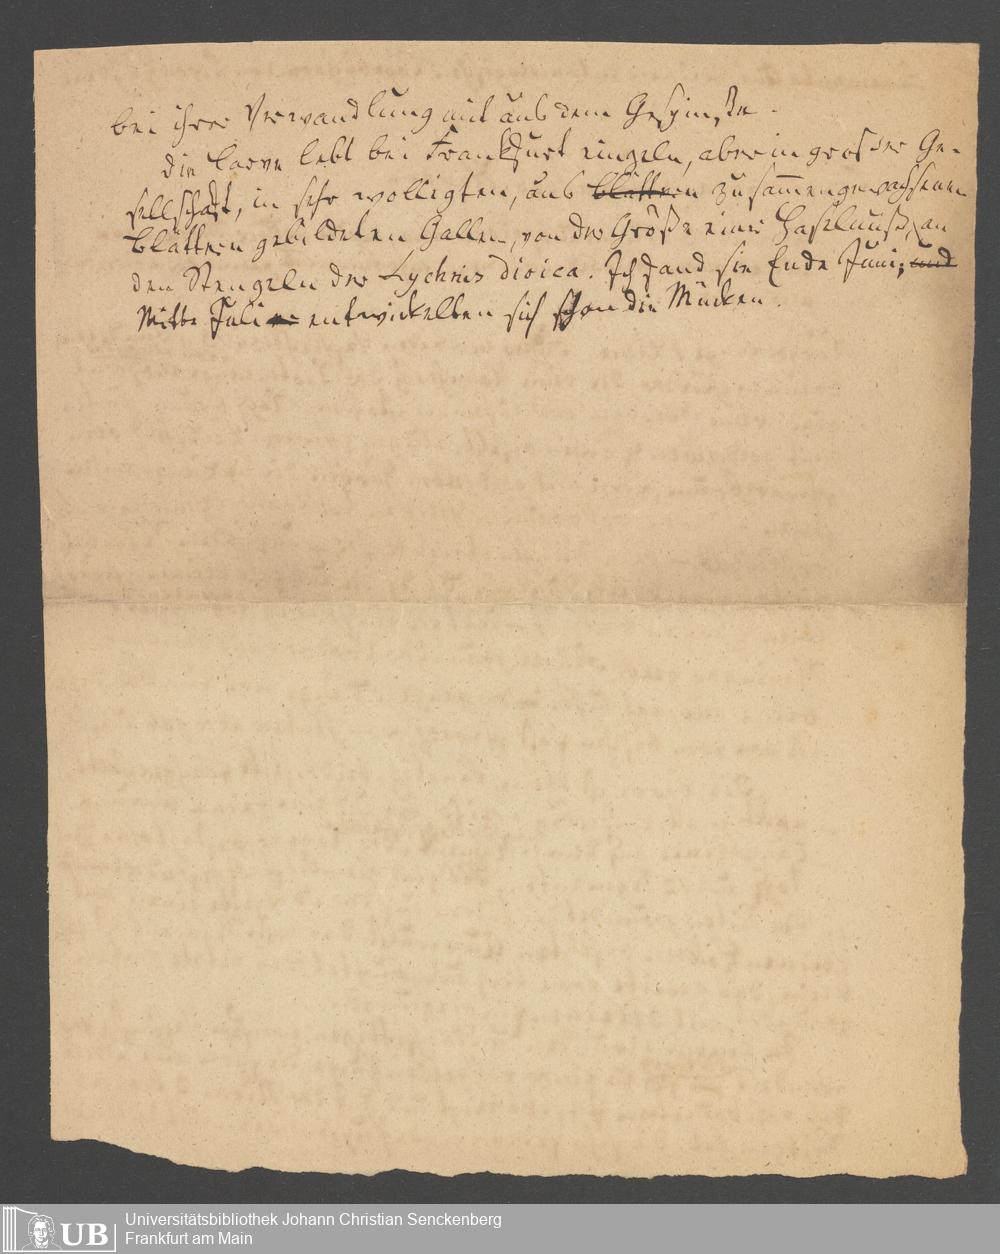 bei ihrer Verwandlung mit aus dem Gespinste.
Die Larve lebt bei Frankfurt einzeln, aber in großer Ge-
sellschaft, in sehr wolligten, aus Blättern zusammengewachsenen
Blättern gebildeten Gallen, von der Größe einer Haselnuß, an
den Stengeln der Lychnis dioica. Ich fand sie Ende Juni; und
Mitte Juli entwickelten sich schon die Mücken.
UB
Universitätsbibliothek Johann Christian Senckenberg
Frankfurt am Main